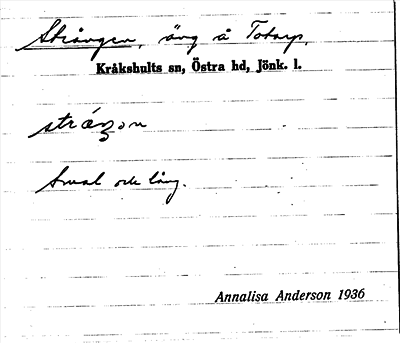 Strången, äng å Totarp,
Kråkshults sn, Östra hd, Jönk. l.
Smal och lång.
Annalisa Anderson 1936